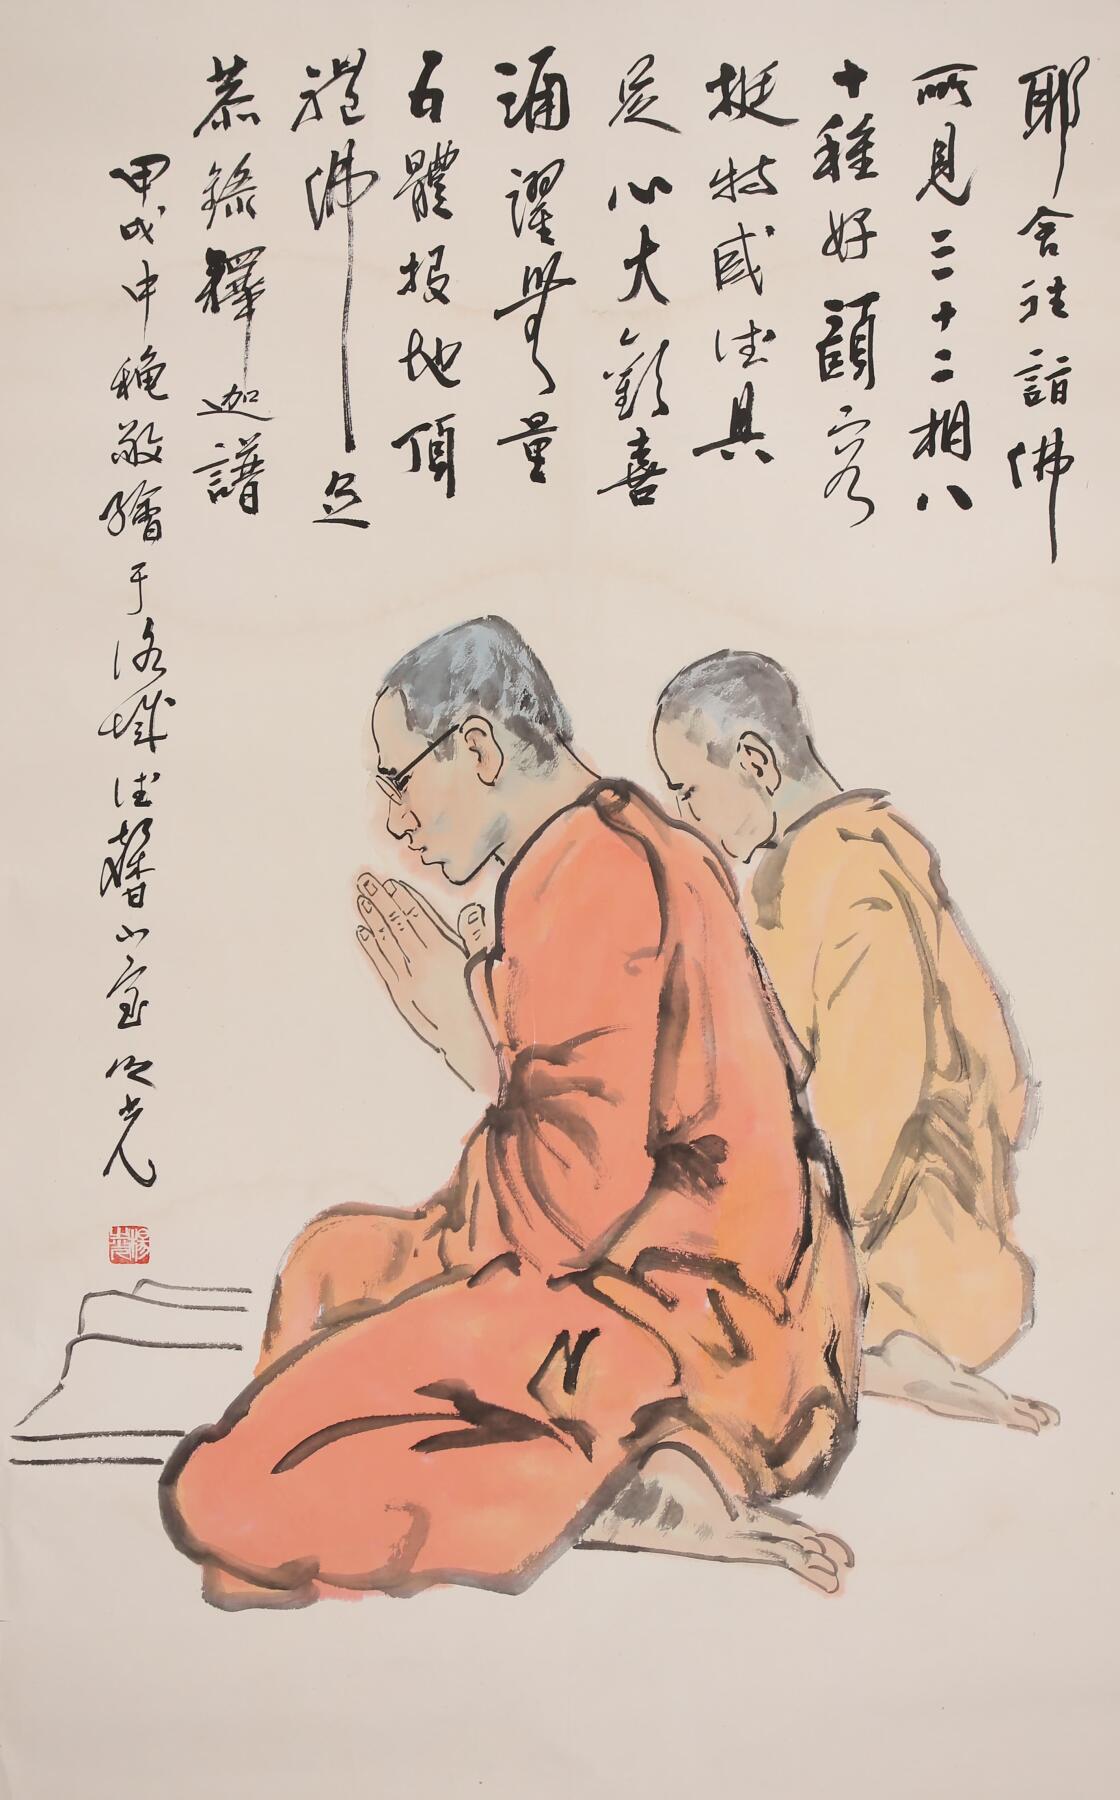 耶舍往詣佛
所見三十二相八
十種好顏容
挺特威德具
足心大歡喜
踊躍無量
五體投地頂
禮佛足
恭錄釋迦譜
甲戌中秋敬繪于洛城德馨小室 光